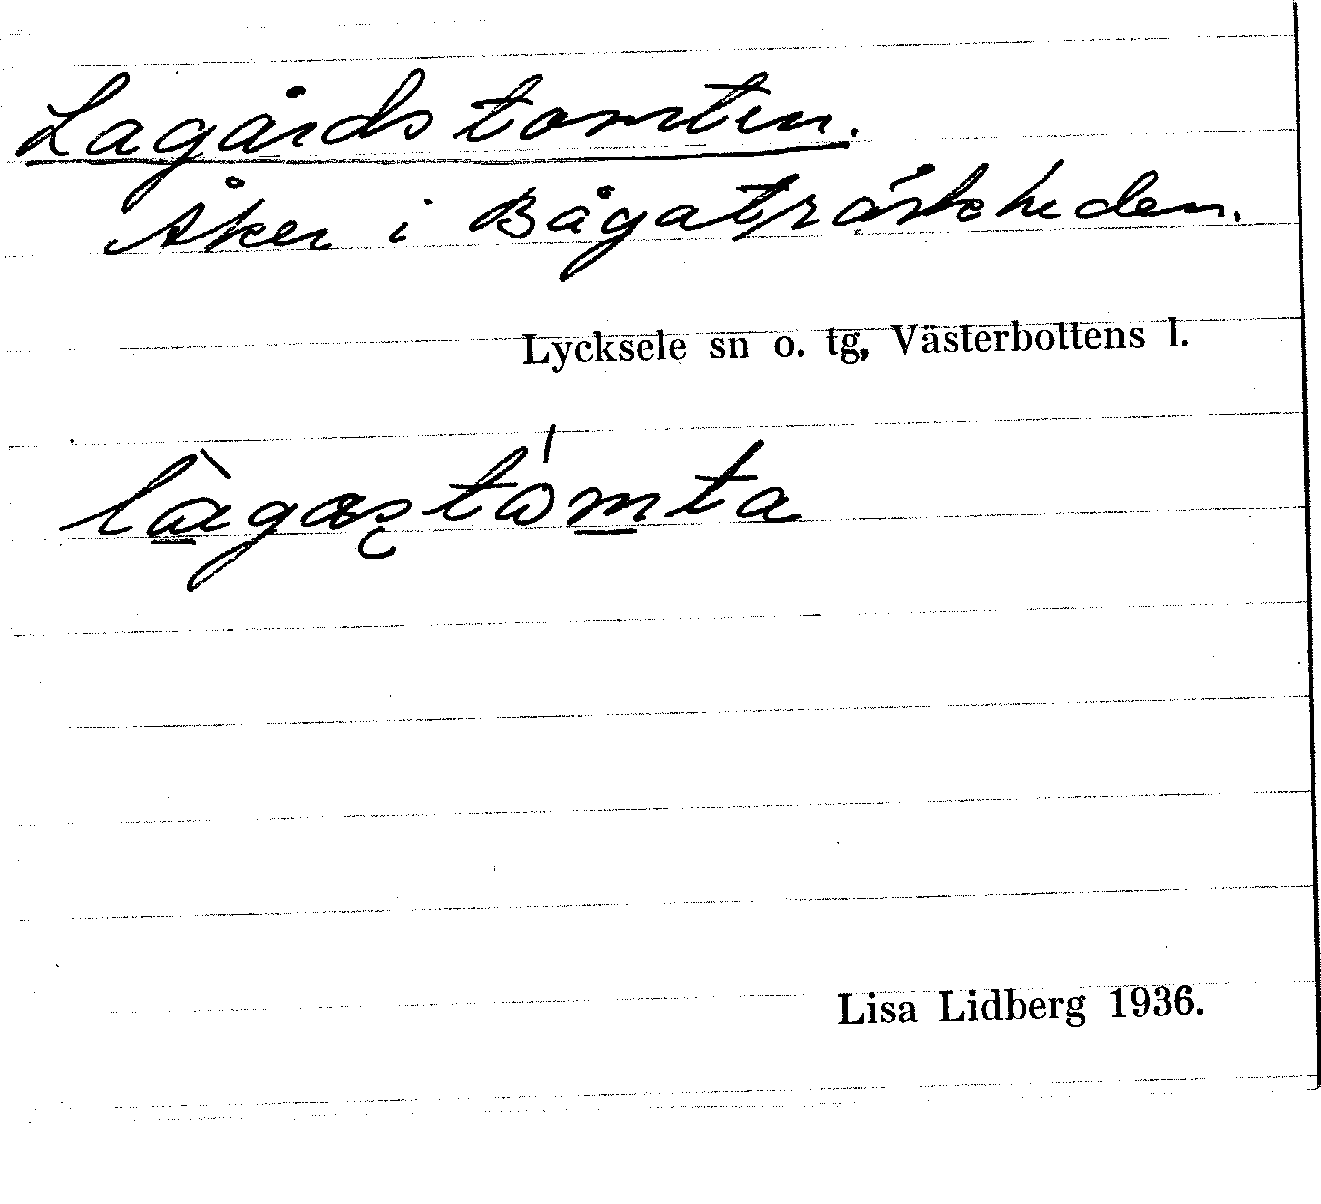 Lagårdstomten.
Åker i Bågaträskheden.
Lycksele sn o. tg, Västerbottens l.
Lisa Lidberg 1936.